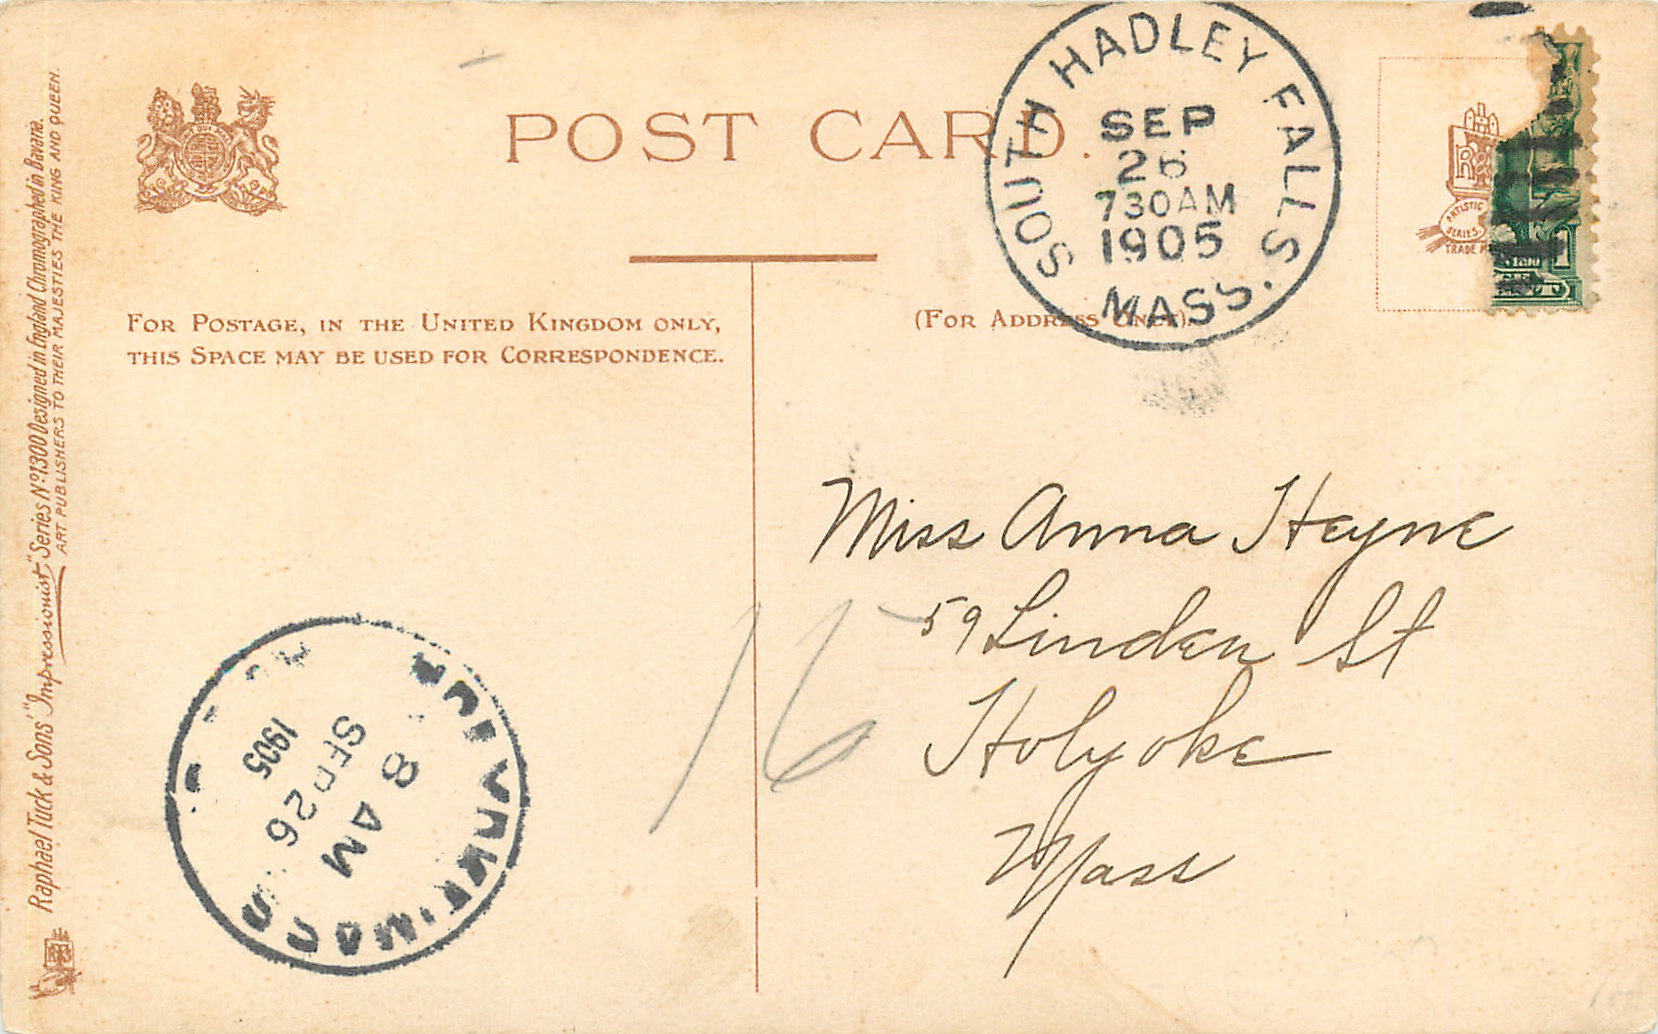 POST CARD.
FOR POSTAGE, IN THE UNITED KINGDOM ONLY,
THIS SPACE MAY BE USED FOR CORRESPONDENCE.
(FOR ADDRESS ONLY).
SOUTH HADLEY FALLS. MASS.
SEP
26
730AM
1905
ARTISTIC
SERIES
TRADE
Miss Anna Heyne
59 Linden St
Holyoke
Mass
16
8 AM
SEP 26
1905
Raphael Tuck & Sons' "Impressionist" Series Nº 1300 Designed in England Chromographed in Bavaria.
ART PUBLISHERS TO THEIR MAJESTIES THE KING AND QUEEN.